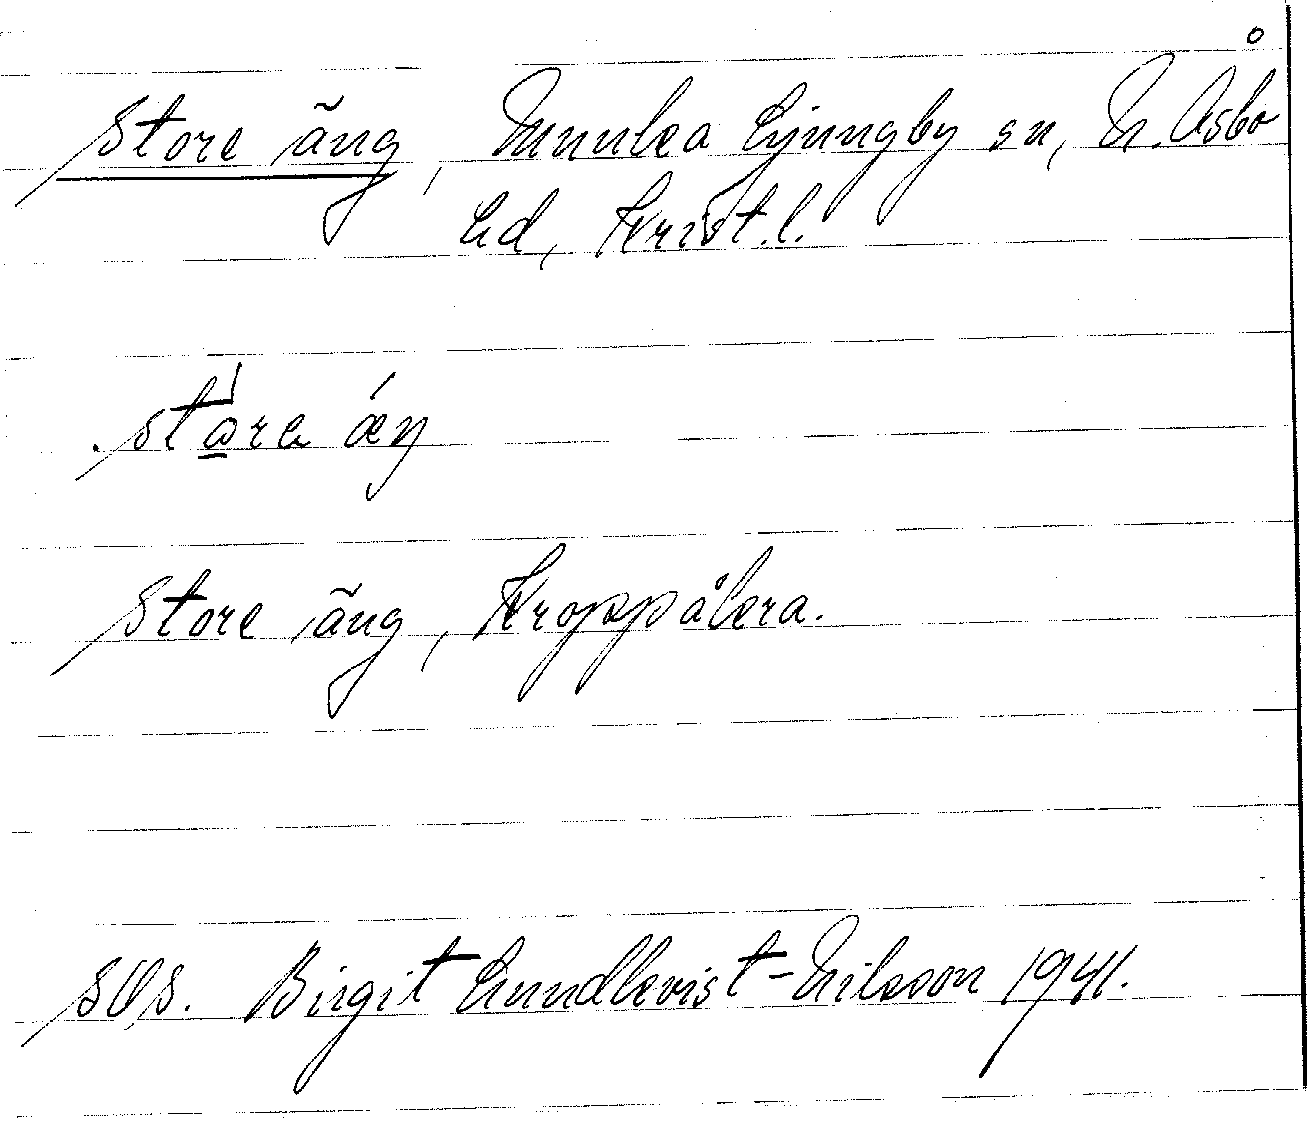 Store äng, Munka Ljungby sn, N. Åsbo
hd, Krist.l.
store äŋ
Store äng, Kroppåkra.
SOS. Birgit Lundkvist-Nilsson 1941.